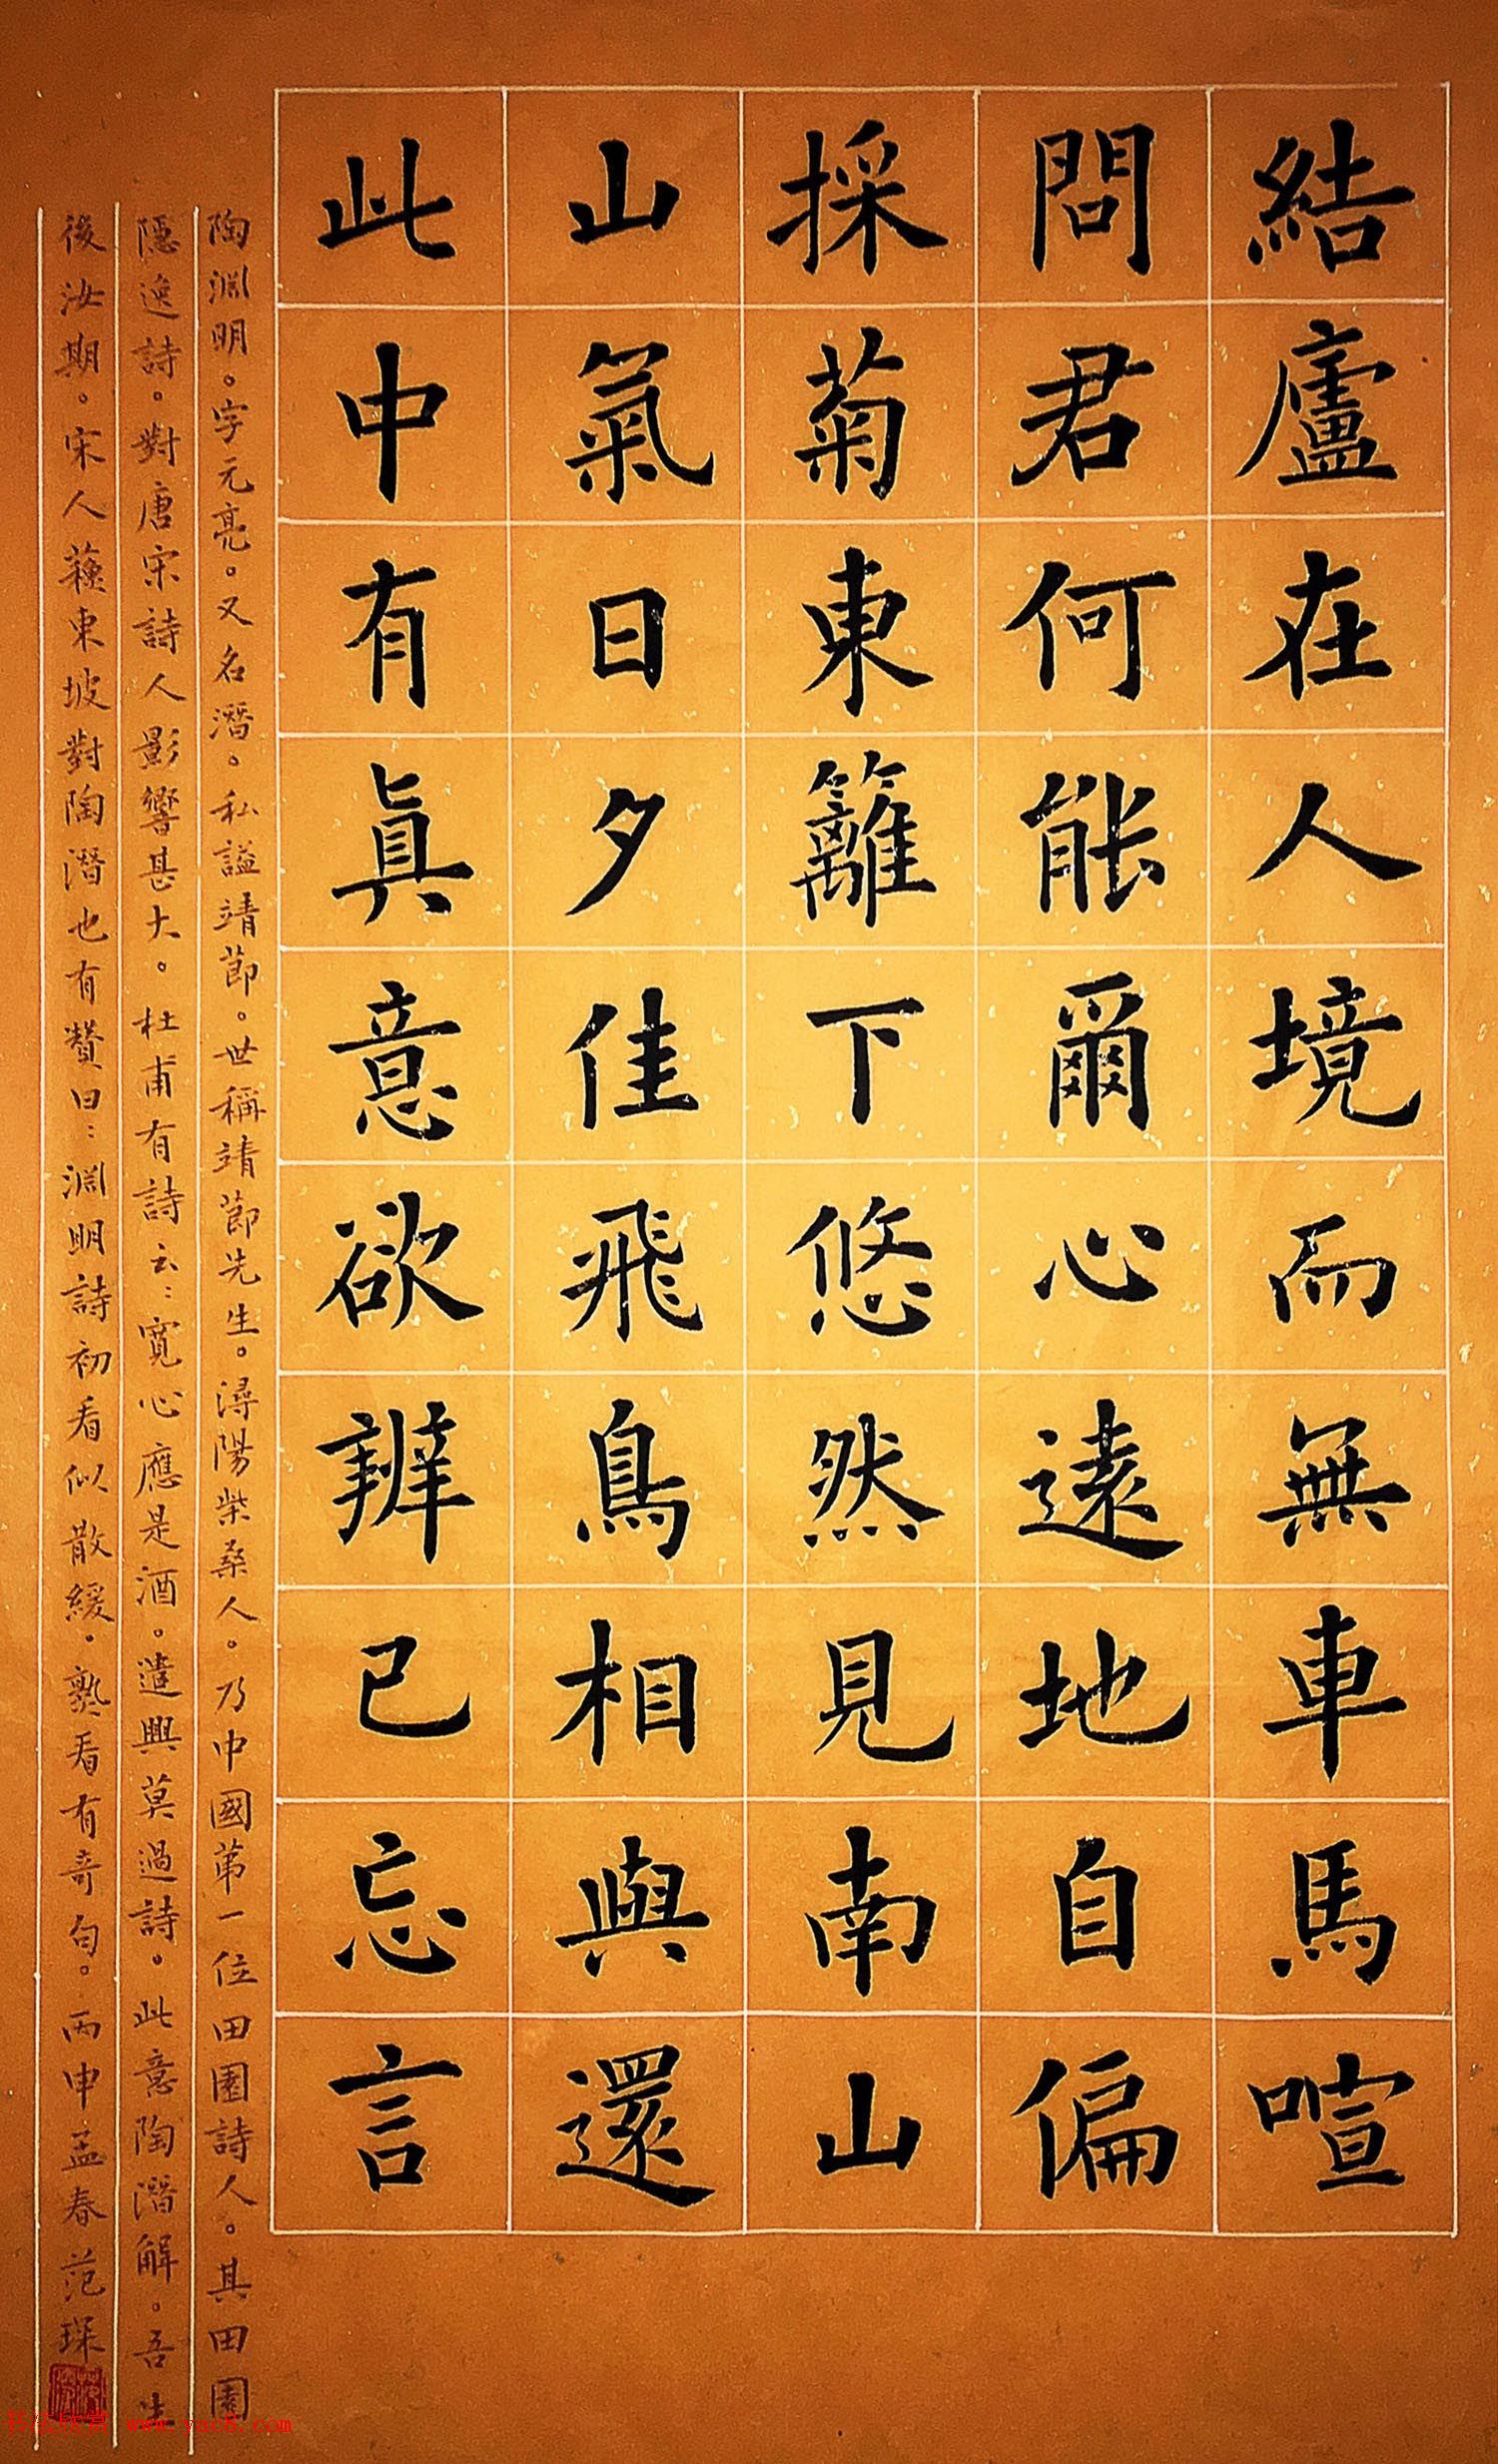 結廬在人境而無車馬喧
問君何能爾心遠地自偏
採菊東籬下悠然見南山
山氣日夕佳飛鳥相與還
此中有真意欲辨已忘言
陶淵明。字元亮。又名潛。私謚靖節。世稱靖節先生。潯陽柴桑人。乃中國第一位田園詩人。其田園
隱逸詩。對唐宋詩人影響甚大。杜甫有詩云：寬心應是酒。遣興莫過詩。此意陶潛解。吾生
後汝期。宋人蘇東坡對陶潛也有贊曰：淵明詩初看似散緩。熟看有奇句。丙申孟春范琛
书法欣赏 www.yac8.com